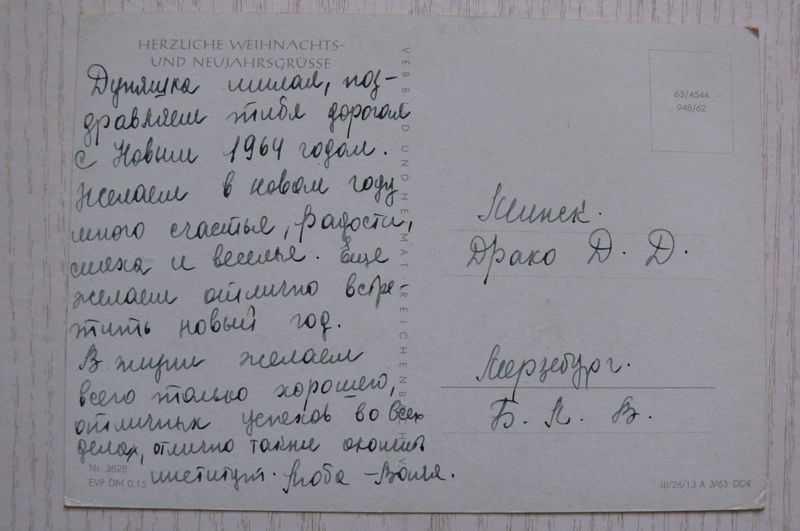 HERZLICHE WEIHNACHTS-
UND NEUJAHRSGRÜSSE
Дуняшка милая, поз-
дравляем тебя дорогая
с Новым 1964 годом.
Желаем в новом году
много счастья, радости,
смеха и веселья. Еще
желаем отлично встре-
тить новый год.
В жизни желаем
всего только хорошего,
отличных успехов во всех
делах, отлично также окончить
институт. Люба - Валя.
Nr. 3828
EVP DM 0.15
VEB BILD UND HEIMAT REICHENBACH V
63/4544
948/62
Минск.
Драко Д. Д.
Мерзебург.
Б. Л. В.
III/26/13 A 3/63 DDR